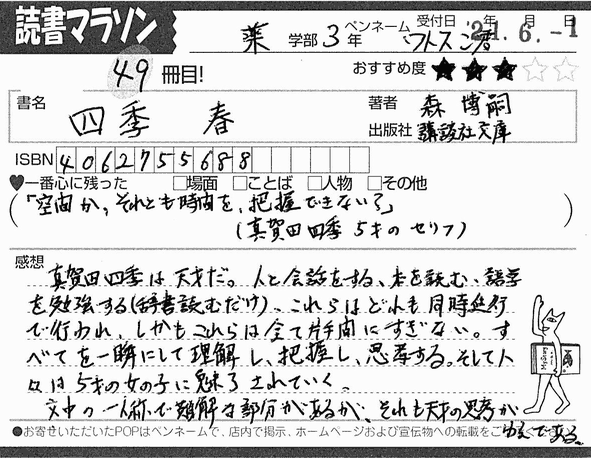 読書マラソン
薬 学部 3年 ペンネーム ワトスン君 受付日 年 月 日 21.6.-1
49冊目! おすすめ度 ★★★☆☆
書名 四季 春 著者 森 博嗣
出版社 講談社文庫
ISBN 4062755688
♥一番心に残った □場面 □ことば □人物 □その他
(「空間か、それとも時間を、把握できない？」
(真賀田四季 5才のセリフ))
感想
真賀田四季は天才だ。人と会話をする、本を読む、語学
を勉強する(辞書読むだけ)、これらはどれも同時進行
で行われ、しかもこれらは全て片手間にすぎない。す
べてを一瞬にして理解し、把握し、思考する。そして人
々は5才の女の子に魅了されていく。
文中の一人称で難解な部分があるが、それも天才の思考が
ゆえである。
●お寄せいただいたPOPはペンネームで、店内で掲示、ホームページおよび宣伝物への転載をご